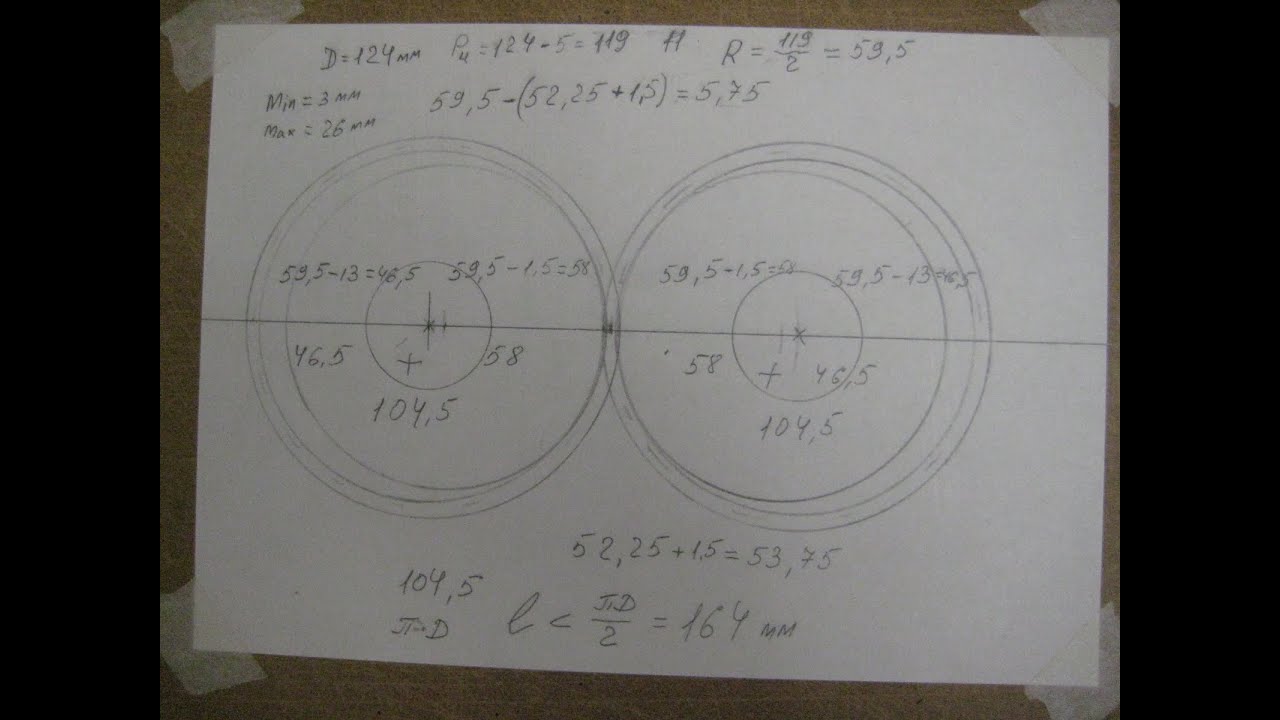 D=124мм Рц=124-5=119 R=119/2=59,5
Min=3мм
max=26мм
59,5-(52,25+1,5)=5,75
59,5-13=46,5 59,5-1,5=58 59,5-1,5=58 59,5-13=46,5
46,5 + 58 58 + 46,5
104,5 104,5
52,25+1,5=53,75
104,5
π-D
l < πD/2 = 164 мм